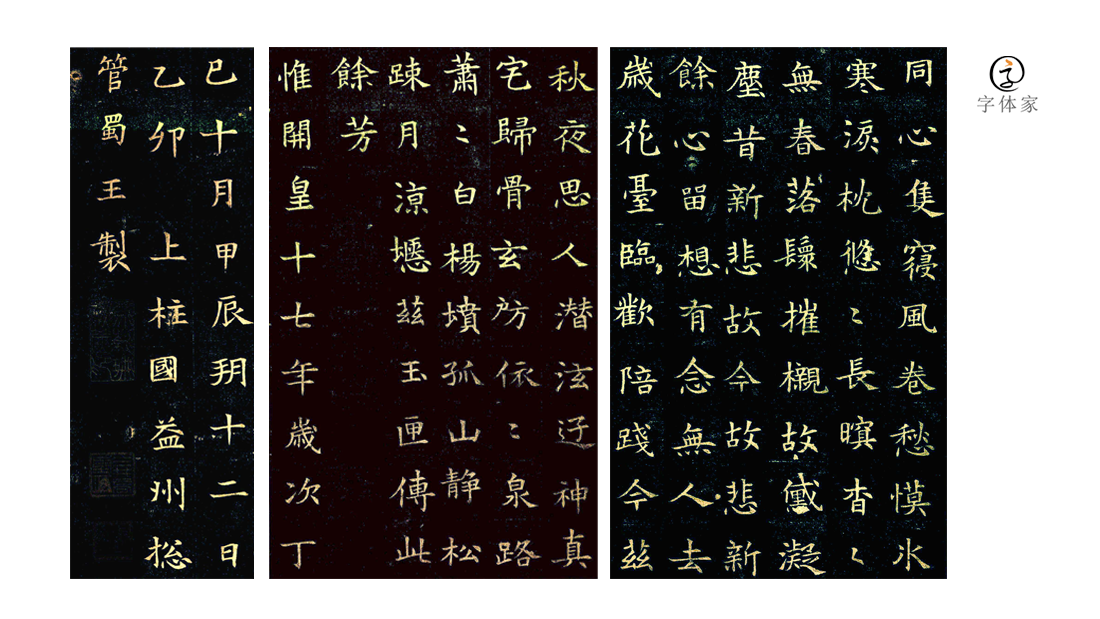 同心隻寢風卷愁慔氷
寒淚枕悠〻長瞑杳〻
無春落鬟摧櫬故黛凝
塵昔新悲故今故悲新
餘心留想有念無人去
歲花臺臨歡陪踐今茲
秋夜思人潛泫迓神真
宅歸骨玄房依〻泉路
蕭〻白楊墳孤山靜松
踈月涼壥茲玉匣傳此
餘芳
惟開皇十七年歲次丁
巳十月甲辰朔十二日
乙卯上柱國益州捴
管蜀王製
字体家